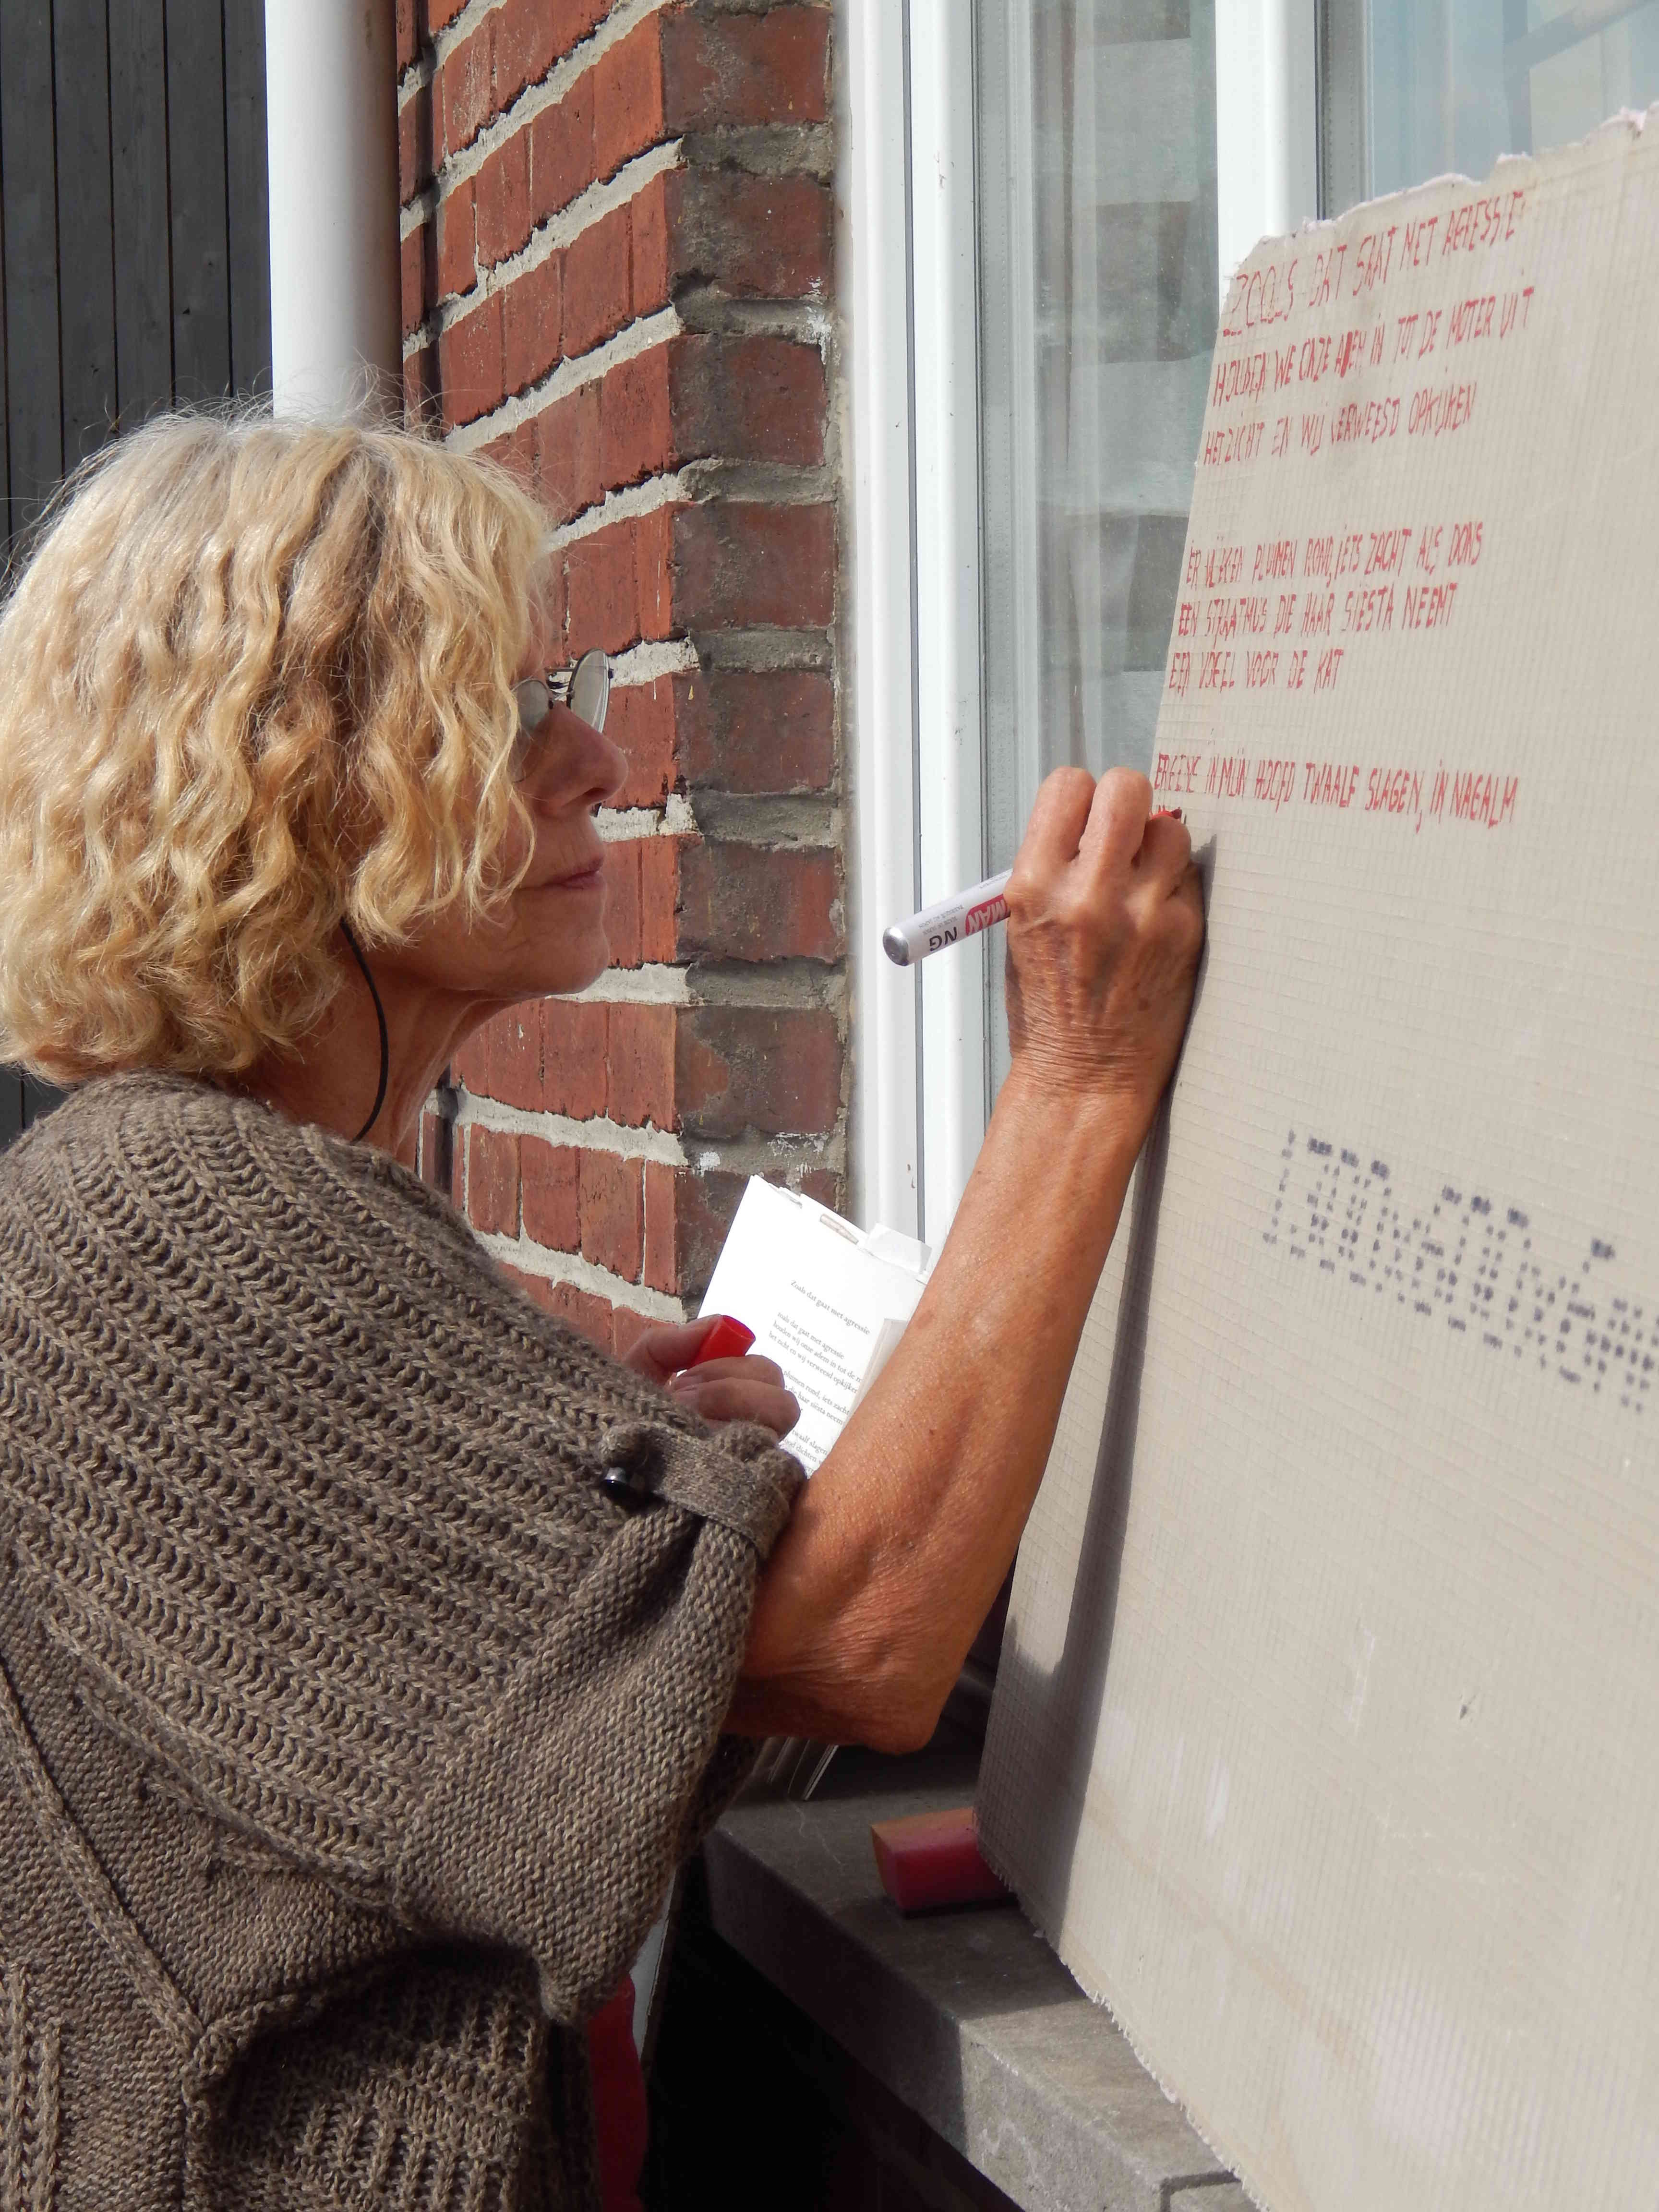 ZOOLS DAT GAAT MET AGRESSIE
HOUDEN WE ONZE ADEM IN TOT DE MOTER UIT
HET ZICHT EN WIJ VERWEESD OPKIJKEN
ER VLIEGEN PLUIMEN ROND, IETS ZACHT ALS DONS
EEN STRAATMUS DIE HAAR SIËSTA NEEMT
EEN VOGEL VOOR DE KAT
ERGENS IN MIJN HOOFD TWAALF SLAGEN, IN NAGALM
MAN
NG
Zoals dat gaat met agressie
zoals dat gaat met agressie
houden wij onze adem in tot de
het zicht en wij verweesd opkijken
pluimen rond, iets zacht
haar siësta neemt
twaalf slagen
dichten